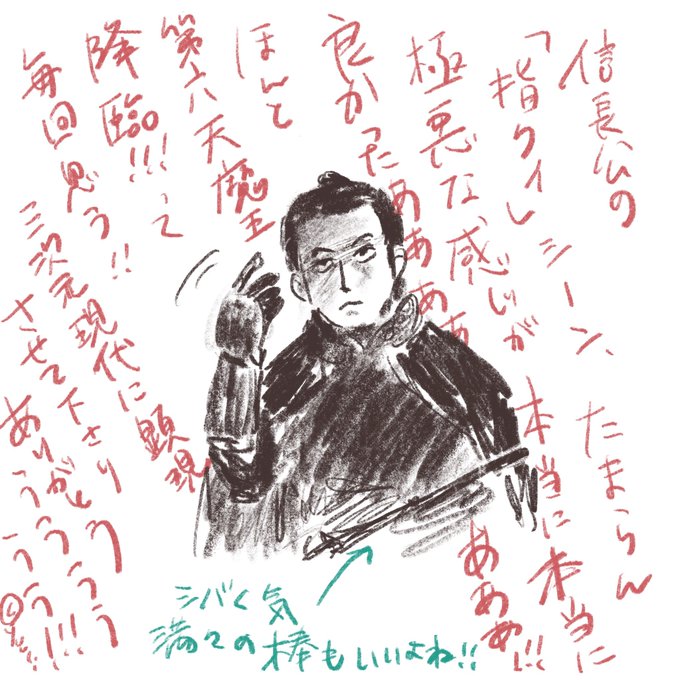 信長公の
「指クイ」シーン、たまらん
極悪な、感じが本当に本当に
良かったああああああぁ!!
ほんと
第六天魔王
降臨!!!って
毎回思う!!
三次元現代に顕現
させて下さりうううう
ありがとうううう!!!
シバく気
満々の棒もいいよね!!